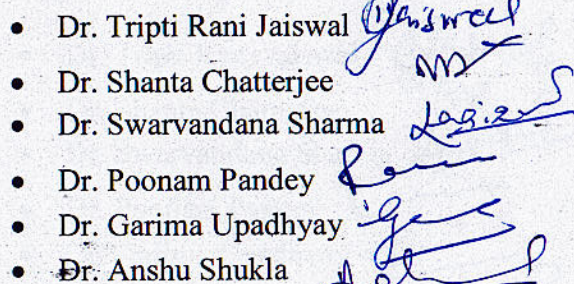 • Dr. Tripti Rani Jaiswal Jaiswal
• Dr. Shanta Chatterjee
• Dr. Swarvandana Sharma
• Dr. Poonam Pandey
• Dr. Garima Upadhyay
• Dr. Anshu Shukla